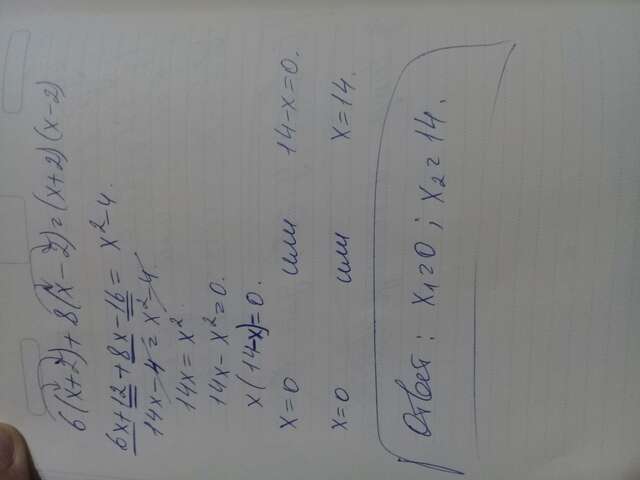 6(x+2)+8(x-2)=(x+2)(x-2)
6x+12+8x-16=x²-4.
14x-4=x²-4.
14x=x².
14x-x²=0.
x(14-x)=0.
x=0 или 14-x=0.
x=0 или x=14.
Ответ: x₁=0; x₂=14.